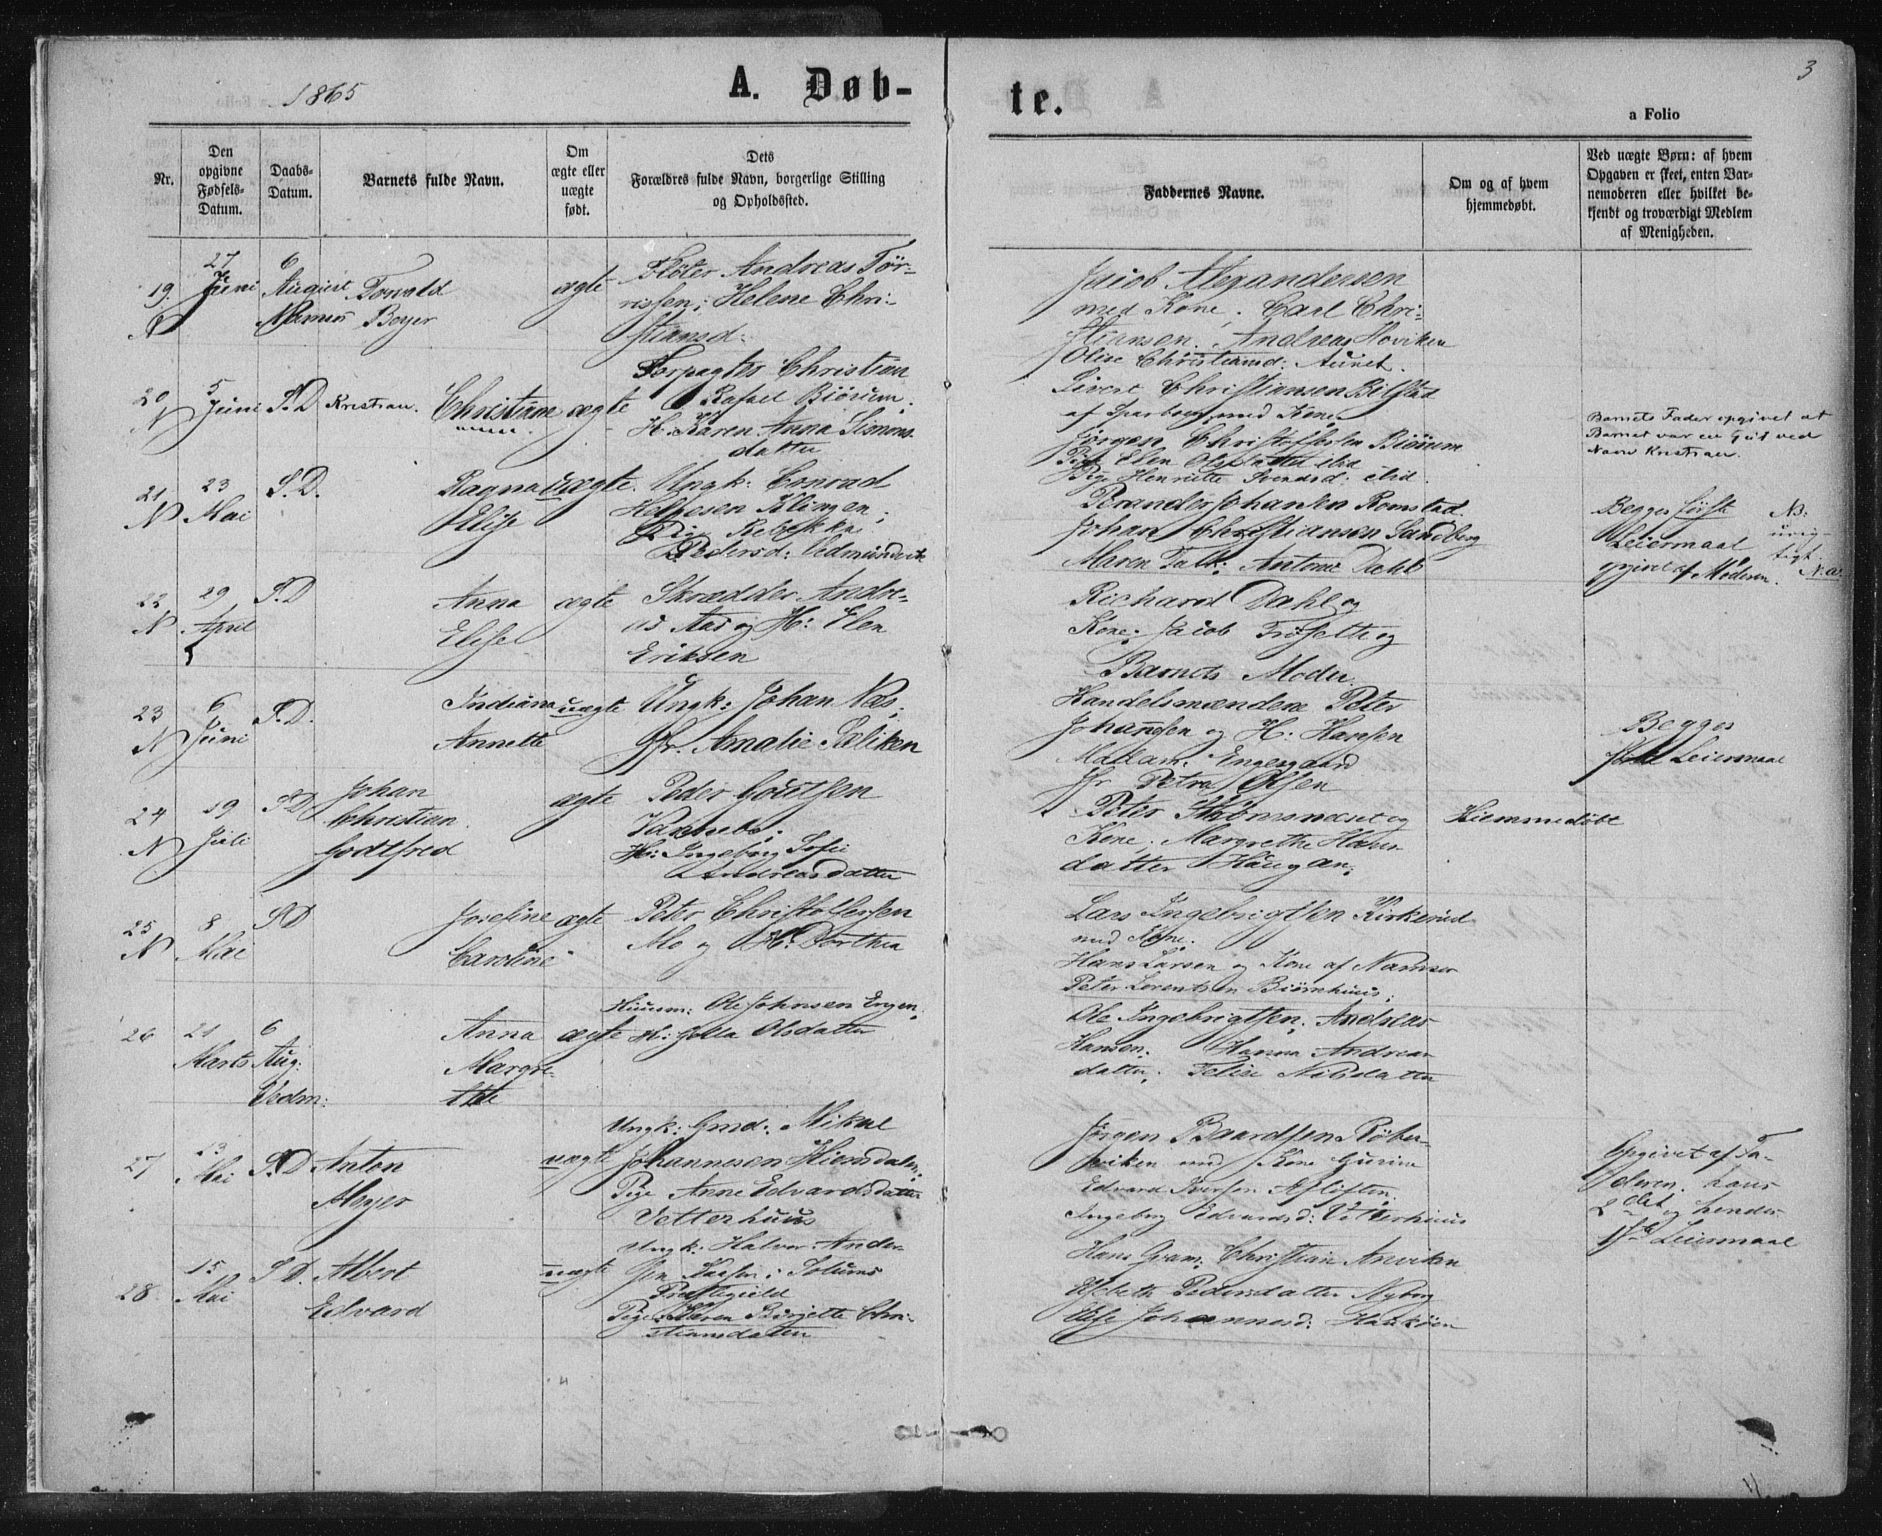 1865
A. Døb-
te.
3
a Folio
Nr.
Den
opgivne
Fødsels-
Datum.
Daabs-
Datum.
Barnets fulde Navn.
Om
ægte eller
uægte
født.
Dets
Forældres fulde Navn, borgerlige Stilling
og Opholdssted.
Faddernes Navne.
Om og af hvem
hjemmedøbt.
Ved uægte Børn: af hvem
Opgaven er skeet, enten Bar-
nemoderen eller hvilket be-
kjendt og troværdigt Medlem
af Menigheden.
19
N
27
Juni
6
August
Namsos
Torvald
Beyer
ægte
Fløter Andreas Tør-
rissen; Helene Chri-
stiansd:
Jacob Alexandersen
med Kone. Carl Chri-
stiansen. Andreas Hoviken
Oline Christiansd: Aunet.
20
N
5
Juni
S.D
Kristian.
Christiane
ægte
Forpagter Christian
Rafael Biørum,
H: Karen Anna Simons
datter
Sivert Christiansen Bilstad
af Sparboen med Kone
Jørgen Christoffersen Biørum
Pige Elen Olsdatter ibid
Pige Henriette Svendsd: ibid.
Barnets Fader opgivet at
Barnet var en Gut ved
Navn Kristian.
21
N
23
Mai
S.D.
Ragna
Elise
uægte
Ungk: Conrad
Helgesen Klingen;
Pige Rebekka
Pedersd: Vedmundvik
Brander Johansen Romstad.
Johan Christiansen Sandberg
Maren Falk; Antone Dahl
Begges første
Leiermaal
opgivet af Moderen.
NB:
urig-
tigt.
N.a.
22
N
29
April
S.D
Anna
Elise
ægte
Skrædder Andre-
as Aas og H: Elen
Eriksen
Richard Dahl og
Kone. Jacob Frøseth og
Barnets Moder.
23
N
6
Juni
S.D.
Indiana
Annette
uægte
Ungk: Johan Næs;
Jfr. Amalie Sæliken
Handelsmændene Peter
Johansen og H: Hansen
Madam: Engesgaard
Jfr Petra Olsen
Begges
Leiermaal
24
N
19
Juli
S.D
Johan
Christian
Godtfred
ægte
Peder Godtsen
H: Ingeborg Sofie
Andreasdatter
Peter Strømsnæs og
Kone. Margrethe Hans
datter Haugan;
Hiemmedøbt
25
N
8
Mai
S.D
Josefine
Caroline
ægte
Peter Christoffersen
Mo og H: Dorthea
Lars Ingebrigtsen Kirkerud
med Kone.
Hans Larsen og Kone af Namsos
Peter Lorentsen Biørnhuus;
26
21
Marts
6
Aug:
Vedm:
Anna
Margre-
the
ægte
Huusm: Ole Johnsen Engen,
H: Jella Olsdatter
Ole Ingebrigtsen; Andreas
Hansen; Hanna Andreas
datter; Nilsdatter
27
13
Mai
S.D
Anton
Meyer
uægte
Ungk: Gmd: Mikal
Johannesen Hiemdalen;
Pige Anne Edvardsdatter
Vetterhuus
Jørgen Baardtsen Røter-
viken med Kone Gurine
Edvard Iversen
Ingeborg Edvardsd: Vetterhuus
Opgivet af Fa-
deren. hans
2det og hendes
1ste Leiermaal
28.
15
Mai
S.D.
Albert
Edvard
uægte
Ungk: Halvor Ander-
sen Solums
Præstegield
Pige: Karen Birgitte Chri-
stiansdatter
Hans Gram; Christian Anviken
Elsebeth Pedersdatter Nyborg
Else Johannesd: